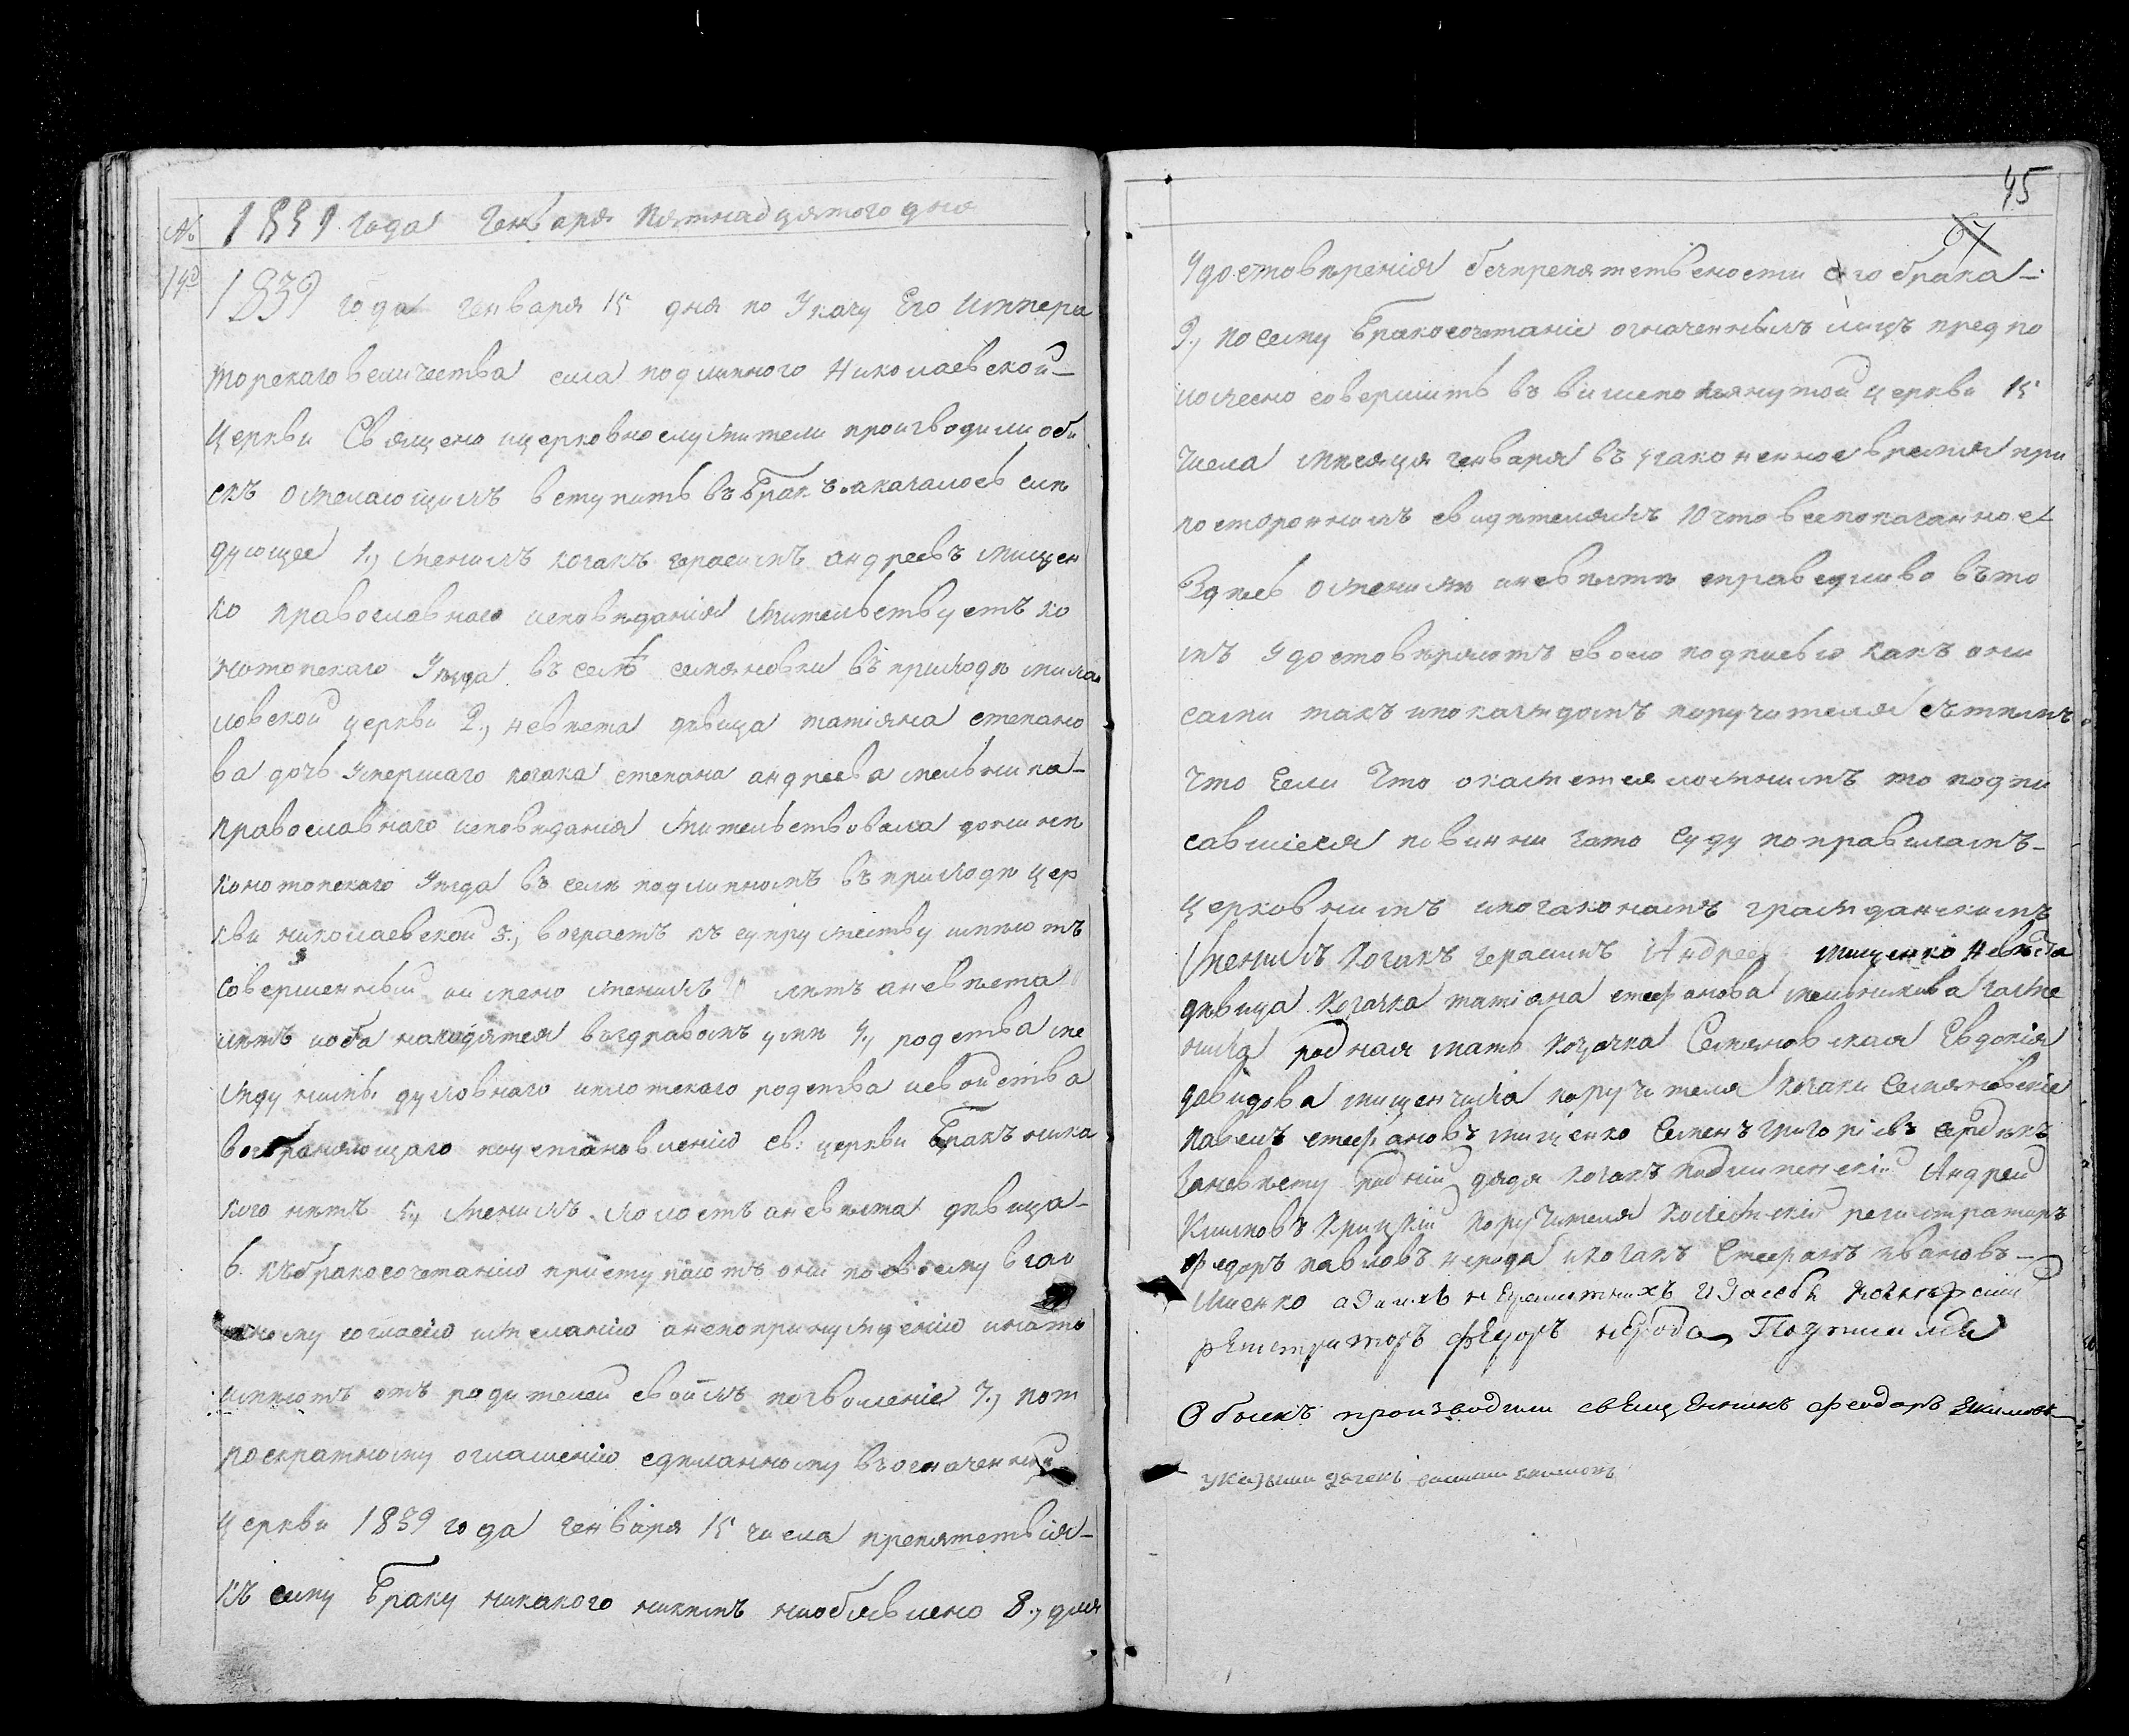 № 1839 года Генваря пятнадцятого дня
14й 1839 года генваря 15 дня по Указу Его Импера
торскаго величества села подлипного Николаевской
церкви Священо ицерковнослужители производили оби
скъ ожелающихъ вступить въ бракъ, аказалось слѣ
дующее 1., женихъ козакъ герасимъ андреевъ мищен
ко православнаго исповѣданія жительствуетъ ко
нотопскаго Уѣзда въ селѣ семяновки въ приходѣ михаи
ловской церкви 2., невѣста дѣвица татіяна степано
ва дочь умершаго козака степана андреева мельника
православнаго исповѣданія жительствовала донинѣ
конотопскаго Уѣзда въ селѣ подлипномъ въ приходѣ цер
кви николаевской 3., возрастъ къ супружеству имѣютъ
совершенный именно женихъ лѣтъ аневѣста
лѣтъ иоба находятся въздравомъ умѣ 4., родства ме
жду ними духовнаго иплотскаго родства исвойства
возбраняющаго поустановленію св: церкви бракъ ника
кого нѣтъ 5., женихъ холостъ аневѣста дѣвица
6. къбракосочетанію приступаютъ они посвоему взаи
мному согласію ижеланію анепопринужденію инато
имѣютъ отъ родителей своихъ позволеніе 7., пот
роекратному оглашенію сдѣланному въозначенной
церкви 1839 года генваря 15 числа препятствія
къ сему браку никакого никемъ необявлено 8., для
45
67
Удостовѣренія безпрепятственности сего брака
9., посему бракосочетаніе означенныхъ лицъ предпо
ложено совершить въ вишепомянутой церкви 15
числа мѣсяця генваря въ узаконенное время при
постороннихъ свидѣтеляхъ 10 что всепоказанное
Здѣсь ожениху иневѣстѣ справедливо въто
мъ удостовѣряютъ своею подписью какъ они
сами такъ ипокаждомъ поручителя сътѣмъ
что Если Что окажется ложнимъ то подпи
савшіеся повинни зато Суду поправиламъ
церковнимъ ипозаконамъ гражданскимъ
Женихъ козакъ герасимъ Андреевъ мищенко невѣста
дѣвица козачка татіана стефанова мельникова заже
ниха родная мать козачка Семяновская Евдокія
давидова мищенчиха поручителя козаки Семяновскіе
павелъ стефановъ мищенко Семенъ григоріевъ
Заневѣсту родній дядя козакъ подлипенскій Андрей
Климовъ Крицкій поручителя колѣжскій регистраторъ
федоръ павловъ нерода икозакъ Стефанъ ивановъ
аЗаихъ неграмотнихъ иЗасебя
регистраторъ федоръ нерода Подписался
Обыскъ производили свещенникъ феодоръ
указныи дячекъ